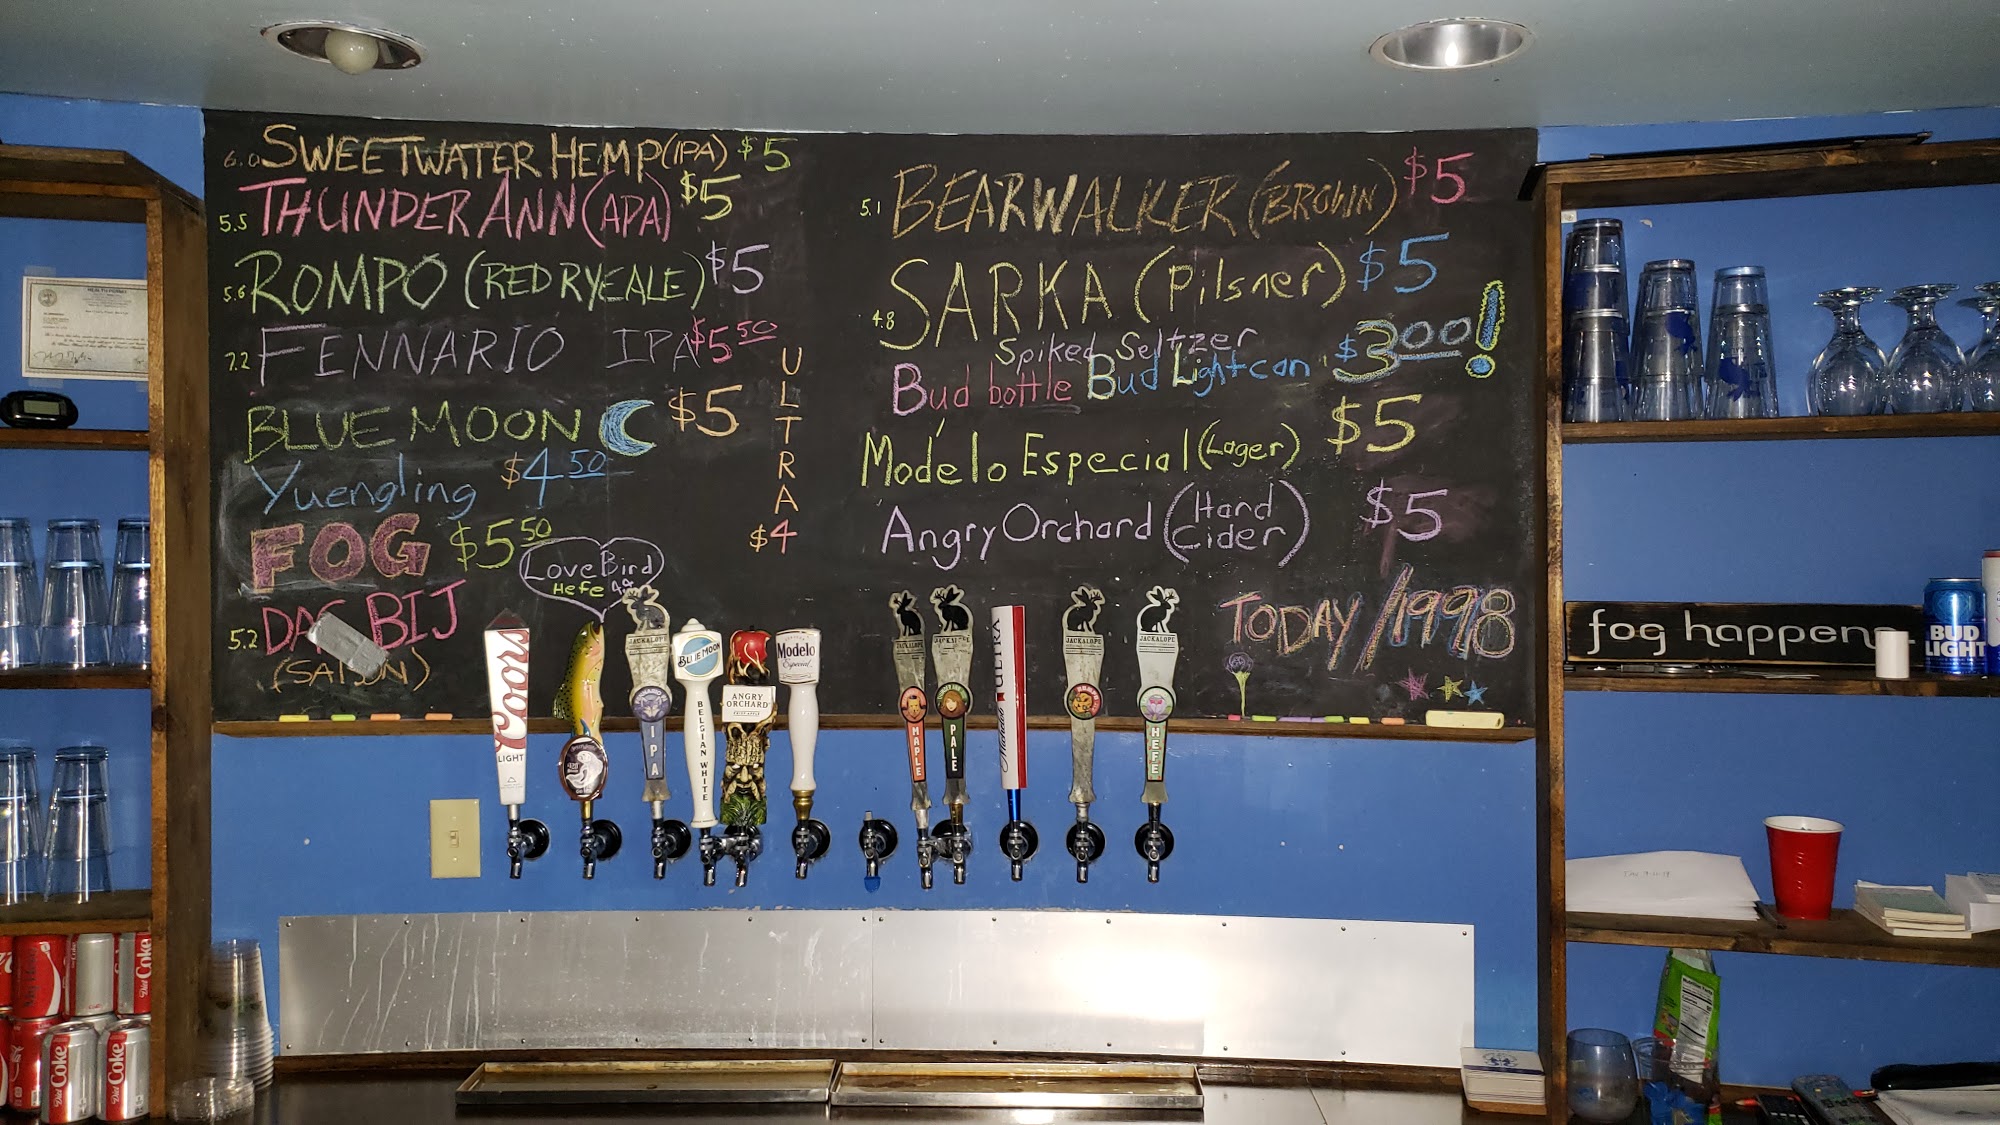 6.0 SWEETWATER HEMP (IPA) $5
5.5 THUNDER ANN (APA) $5
5.6 ROMPO (RED RYE ALE) $5
7.2 FENNARIO IPA $5 50
BLUE MOON $5
Yuengling $4 50
FOG $5 50
5.2 DAS BIJ
(SAISON)
Love Bird
Hefe
ULTRA
$4
5.1 BEARWALKER (BROWN) $5
4.8 SARKA (Pilsner) $5
Spiked Seltzer
Bud bottle Bud Light can $3 00!
Modelo Especial (Lager) $5
Angry Orchard (Hard Cider) $5
TODAY/1998
Coors
LIGHT
JACKALOPE
IPA
BLUE MOON
BELGIAN WHITE
ANGRY
ORCHARD
Modelo
Especial
JACKALOPE
MAPLE
JACKALOPE
PALE
Michelob ULTRA
JACKALOPE
JACKALOPE
HEFE
fog happens
BUD
LIGHT
Diet Coke
Coke
Diet Coke
Coke